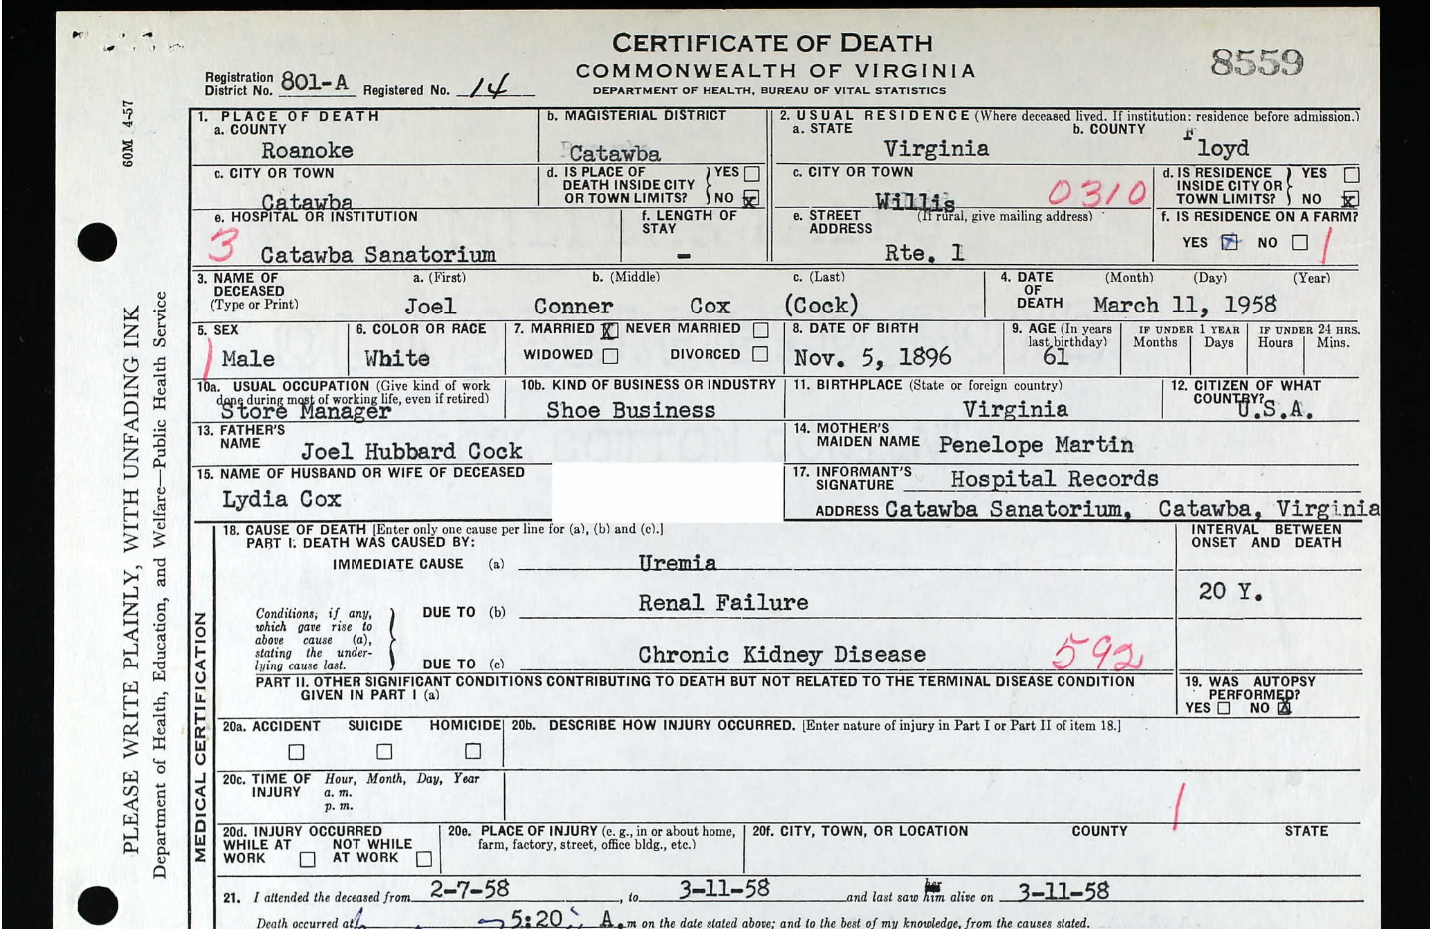 CERTIFICATE OF DEATH
COMMONWEALTH OF VIRGINIA
DEPARTMENT OF HEALTH, BUREAU OF VITAL STATISTICS
8559
Registration District No. 801-A Registered No. 14
60M 4-57
PLEASE WRITE PLAINLY, WITH UNFADING INK
Department of Health, Education, and Welfare—Public Health Service
1. PLACE OF DEATH
a. COUNTY
Roanoke
b. MAGISTERIAL DISTRICT
Catawba
2. USUAL RESIDENCE (Where deceased lived. If institution: residence before admission.)
a. STATE
Virginia
b. COUNTY
Floyd
c. CITY OR TOWN
Catawba
d. IS PLACE OF DEATH INSIDE CITY OR TOWN LIMITS? YES NO x
c. CITY OR TOWN
Willis
0310
d. IS RESIDENCE INSIDE CITY OR TOWN LIMITS? YES NO x
e. HOSPITAL OR INSTITUTION
3 Catawba Sanatorium
f. LENGTH OF STAY
-
e. STREET ADDRESS (If rural, give mailing address)
Rte. 1
f. IS RESIDENCE ON A FARM?
YES NO
3. NAME OF DECEASED (Type or Print)
a. (First) b. (Middle) c. (Last)
Joel Conner Cox (Cock)
4. DATE OF DEATH (Month) (Day) (Year)
March 11, 1958
5. SEX
Male
6. COLOR OR RACE
White
7. MARRIED X NEVER MARRIED
WIDOWED DIVORCED
8. DATE OF BIRTH
Nov. 5, 1896
9. AGE (In years last birthday)
61
IF UNDER 1 YEAR
Months Days
IF UNDER 24 HRS.
Hours Mins.
10a. USUAL OCCUPATION (Give kind of work done during most of working life, even if retired)
Store Manager
10b. KIND OF BUSINESS OR INDUSTRY
Shoe Business
11. BIRTHPLACE (State or foreign country)
Virginia
12. CITIZEN OF WHAT COUNTRY?
U.S.A.
13. FATHER'S NAME
Joel Hubbard Cock
14. MOTHER'S MAIDEN NAME Penelope Martin
15. NAME OF HUSBAND OR WIFE OF DECEASED
Lydia Cox
17. INFORMANT'S SIGNATURE Hospital Records
ADDRESS Catawba Sanatorium, Catawba, Virginia
MEDICAL CERTIFICATION
18. CAUSE OF DEATH [Enter only one cause per line for (a), (b) and (c).]
PART I. DEATH WAS CAUSED BY:
INTERVAL BETWEEN ONSET AND DEATH
IMMEDIATE CAUSE (a) Uremia
20 Y.
Conditions, if any, which gave rise to above cause (a), stating the underlying cause last.
DUE TO (b) Renal Failure
DUE TO (c) Chronic Kidney Disease
592
PART II. OTHER SIGNIFICANT CONDITIONS CONTRIBUTING TO DEATH BUT NOT RELATED TO THE TERMINAL DISEASE CONDITION
GIVEN IN PART I (a)
19. WAS AUTOPSY PERFORMED?
YES NO X
20a. ACCIDENT SUICIDE HOMICIDE
20b. DESCRIBE HOW INJURY OCCURRED. [Enter nature of injury in Part I or Part II of item 18.]
20c. TIME OF INJURY Hour, Month, Day, Year
a. m.
p. m.
20d. INJURY OCCURRED
WHILE AT WORK NOT WHILE AT WORK
20e. PLACE OF INJURY (e. g., in or about home, farm, factory, street, office bldg., etc.)
20f. CITY, TOWN, OR LOCATION COUNTY STATE
21. I attended the deceased from 2-7-58, to 3-11-58 and last saw him alive on 3-11-58
Death occurred at 5:20 A.m on the date stated above; and to the best of my knowledge, from the causes stated.